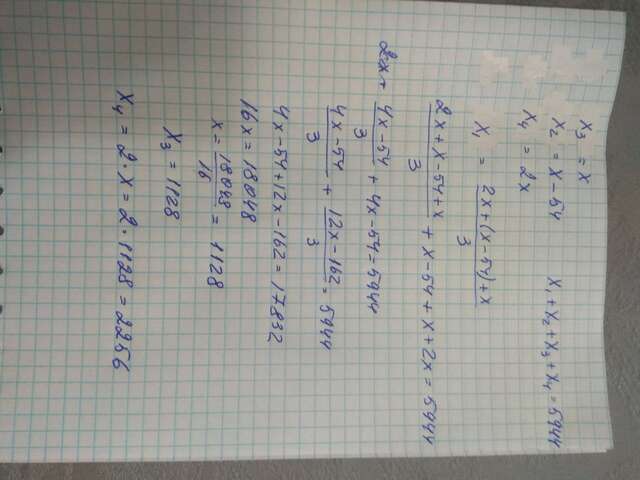 x₃ = x
x₂ = x - 54 x₁ + x₂ + x₃ + x₄ = 5944
x₄ = 2x
x₁ = (2x + (x - 54) + x)/3
(2x + x - 54 + x)/3 + x - 54 + x + 2x = 5944
(4x - 54)/3 + 4x - 54 = 5944
(4x - 54)/3 + (12x - 162)/3 = 5944
4x - 54 + 12x - 162 = 17832
16x = 18048
x = 18048/16 = 1128
x₃ = 1128
x₄ = 2 · x = 2 · 1128 = 2256